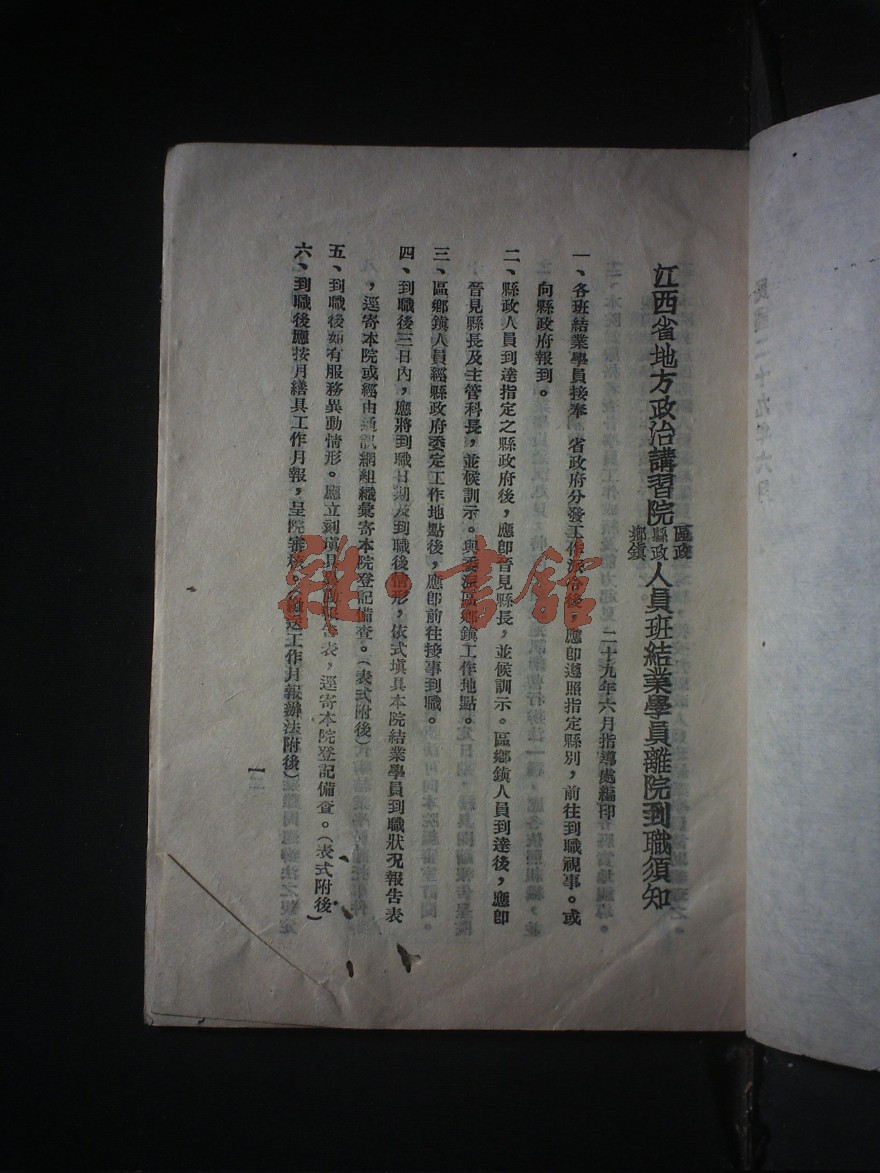 江西省地方政治講習院區政縣政鄉鎮人員班結業學員離院到職須知
二十九年六月指導處編印
一、各班結業學員接奉 省政府分發工作派令後，應卽遵照指定縣別，前往到職視事。或
向縣政府報到。
二、縣政人員到達指定之縣政府後，應卽晉見縣長，並候訓示。區鄉鎮人員到達後，應卽
晉見縣長及主管科長，並候訓示。與委派區鄉鎮工作地點。
三、區鄉鎮人員經縣政府委定工作地點後，應卽前往接事到職。
四、到職後三日內，應將到職日期及到職後情形，依式填具本院結業學員到職狀况報告表
，逕寄本院或經由通訊網組織彙寄本院登記備查。（表式附後）
五、到職後如有服務異動情形。應立刻填具異動報告表，逕寄本院登記備查。（表式附後）
六、到職後應按月繕具工作月報，呈院審核。送工作月報辦法附後）
一
民國二十九年六月
雜·書館